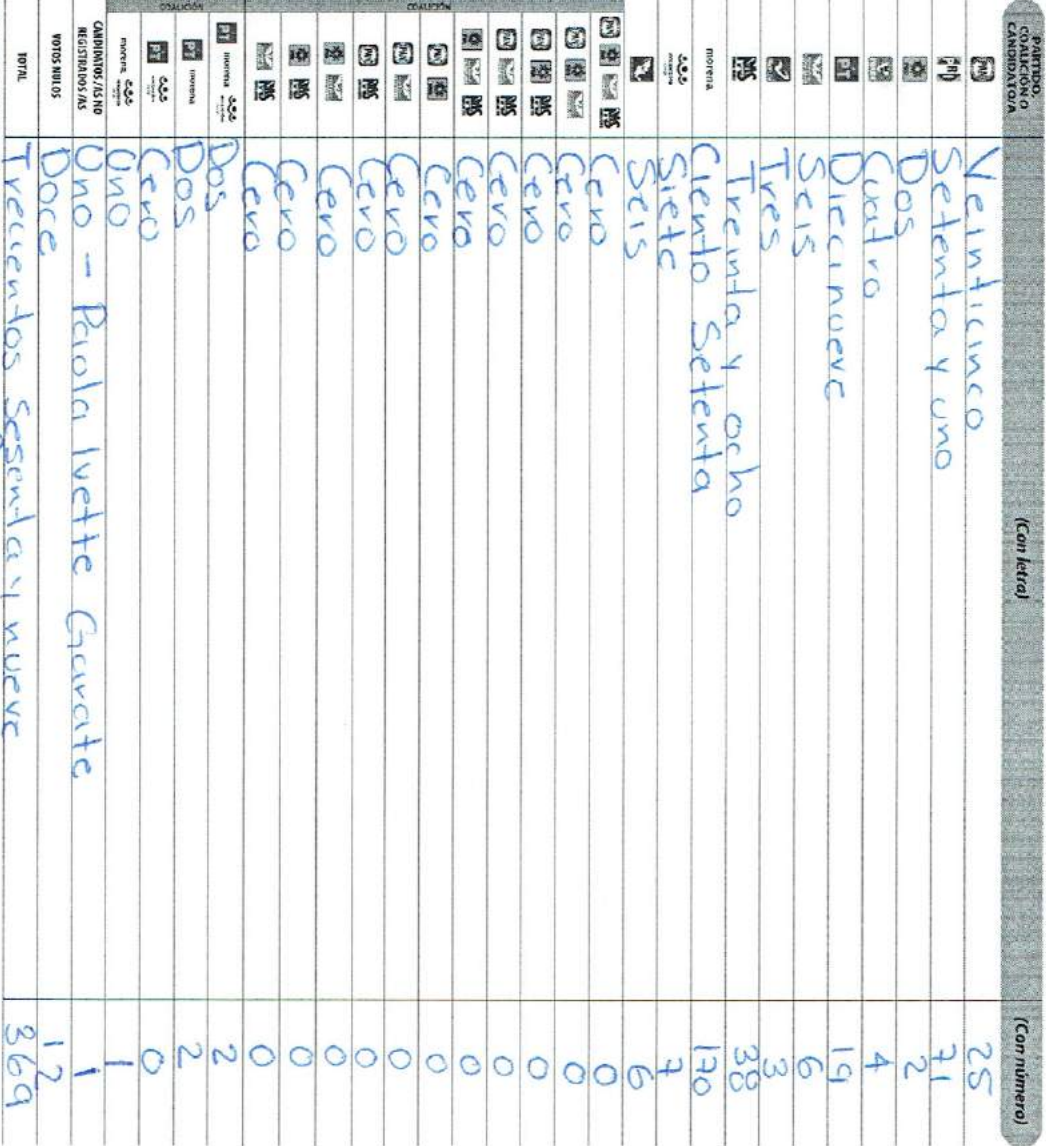 PARTIDO, COALICIÓN O CANDIDATO/A (Con letra) (Con número)
PAN Veinticinco 25
Setenta y uno 71
Dos 2
Cuatro 4
PT Diecinueve 19
Seis 6
Tres 3
PAS Treinta y ocho 38
morena Ciento Setenta 170
Siete 7
Seis 6
COALICIÓN
PAN PAS Cero 0
PAN Cero 0
PAN PAS Cero 0
PAN PAS Cero 0
PAS Cero 0
PAN Cero 0
PAN Cero 0
PAN PAS Cero 0
Cero 0
PAS Cero 0
PAS Cero 0
COALICIÓN
PT morena Dos 2
PT morena Dos 2
PT Cero 0
morena Uno 1
CANDIDATOS/AS NO REGISTRADOS/AS Uno - Paola Ivette Garate 1
VOTOS NULOS Doce 12
TOTAL Trecientos Sesenta y nueve 369